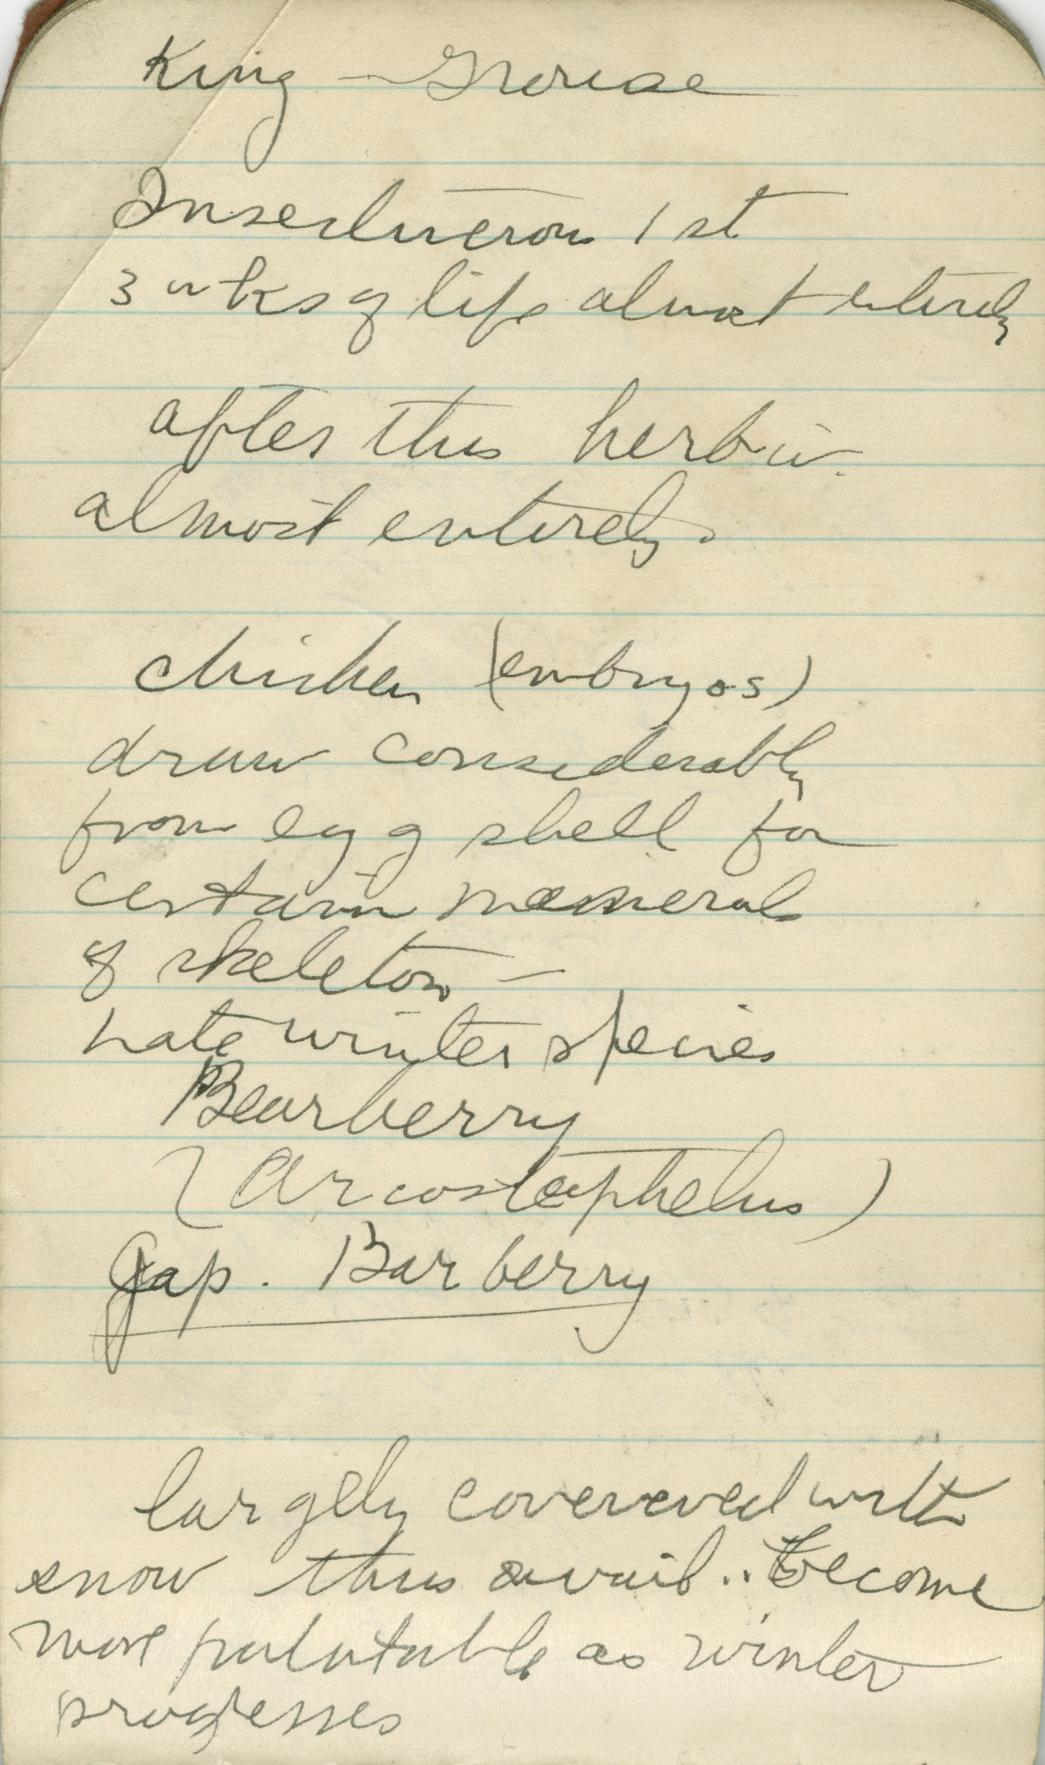 King - Grouse
Insectiverous 1st
3 wks of life almost entirely
after this herbiv.
almost entirely.
chicken (embryos)
draw considerably
from egg shell for
certain minerals
of skeleton -
late winter species
Bearberry
(Arcostaphelus)
Jap. Barberry
largely covereved with
snow thus avail.. become
more palatable as winter
progresses